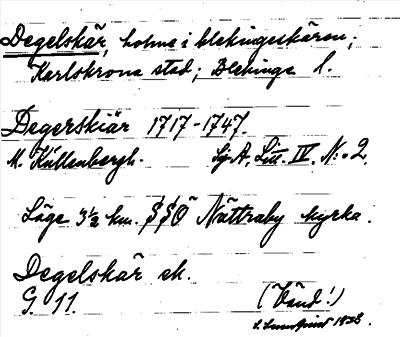 Degelskär, holme i blekingeskären;
Karlskrona stad; Blekinge l.
Degerskiär 1717-1747.
M. Kullenbergh. Sj. A. Litt. IV. N:o 2.
Läge 3½ km. SSO Nättraby kyrka.
Degelskär ek.
G. 11. (Vänd!)
1928.